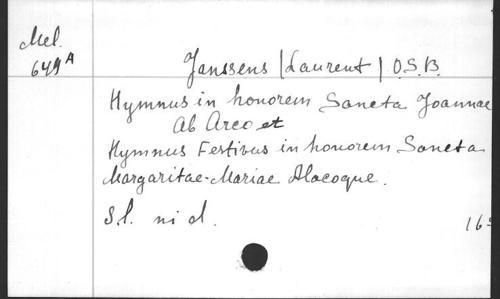 Mel.
649A
Janssens (Laurent) O.S.B.
Hymnus in honorem Sancta Joannae
Ab Arco et
Hymnus Festivus in honorem Sancta
Margaritae-Mariae Alacoque.
S.l. ni d.
16=